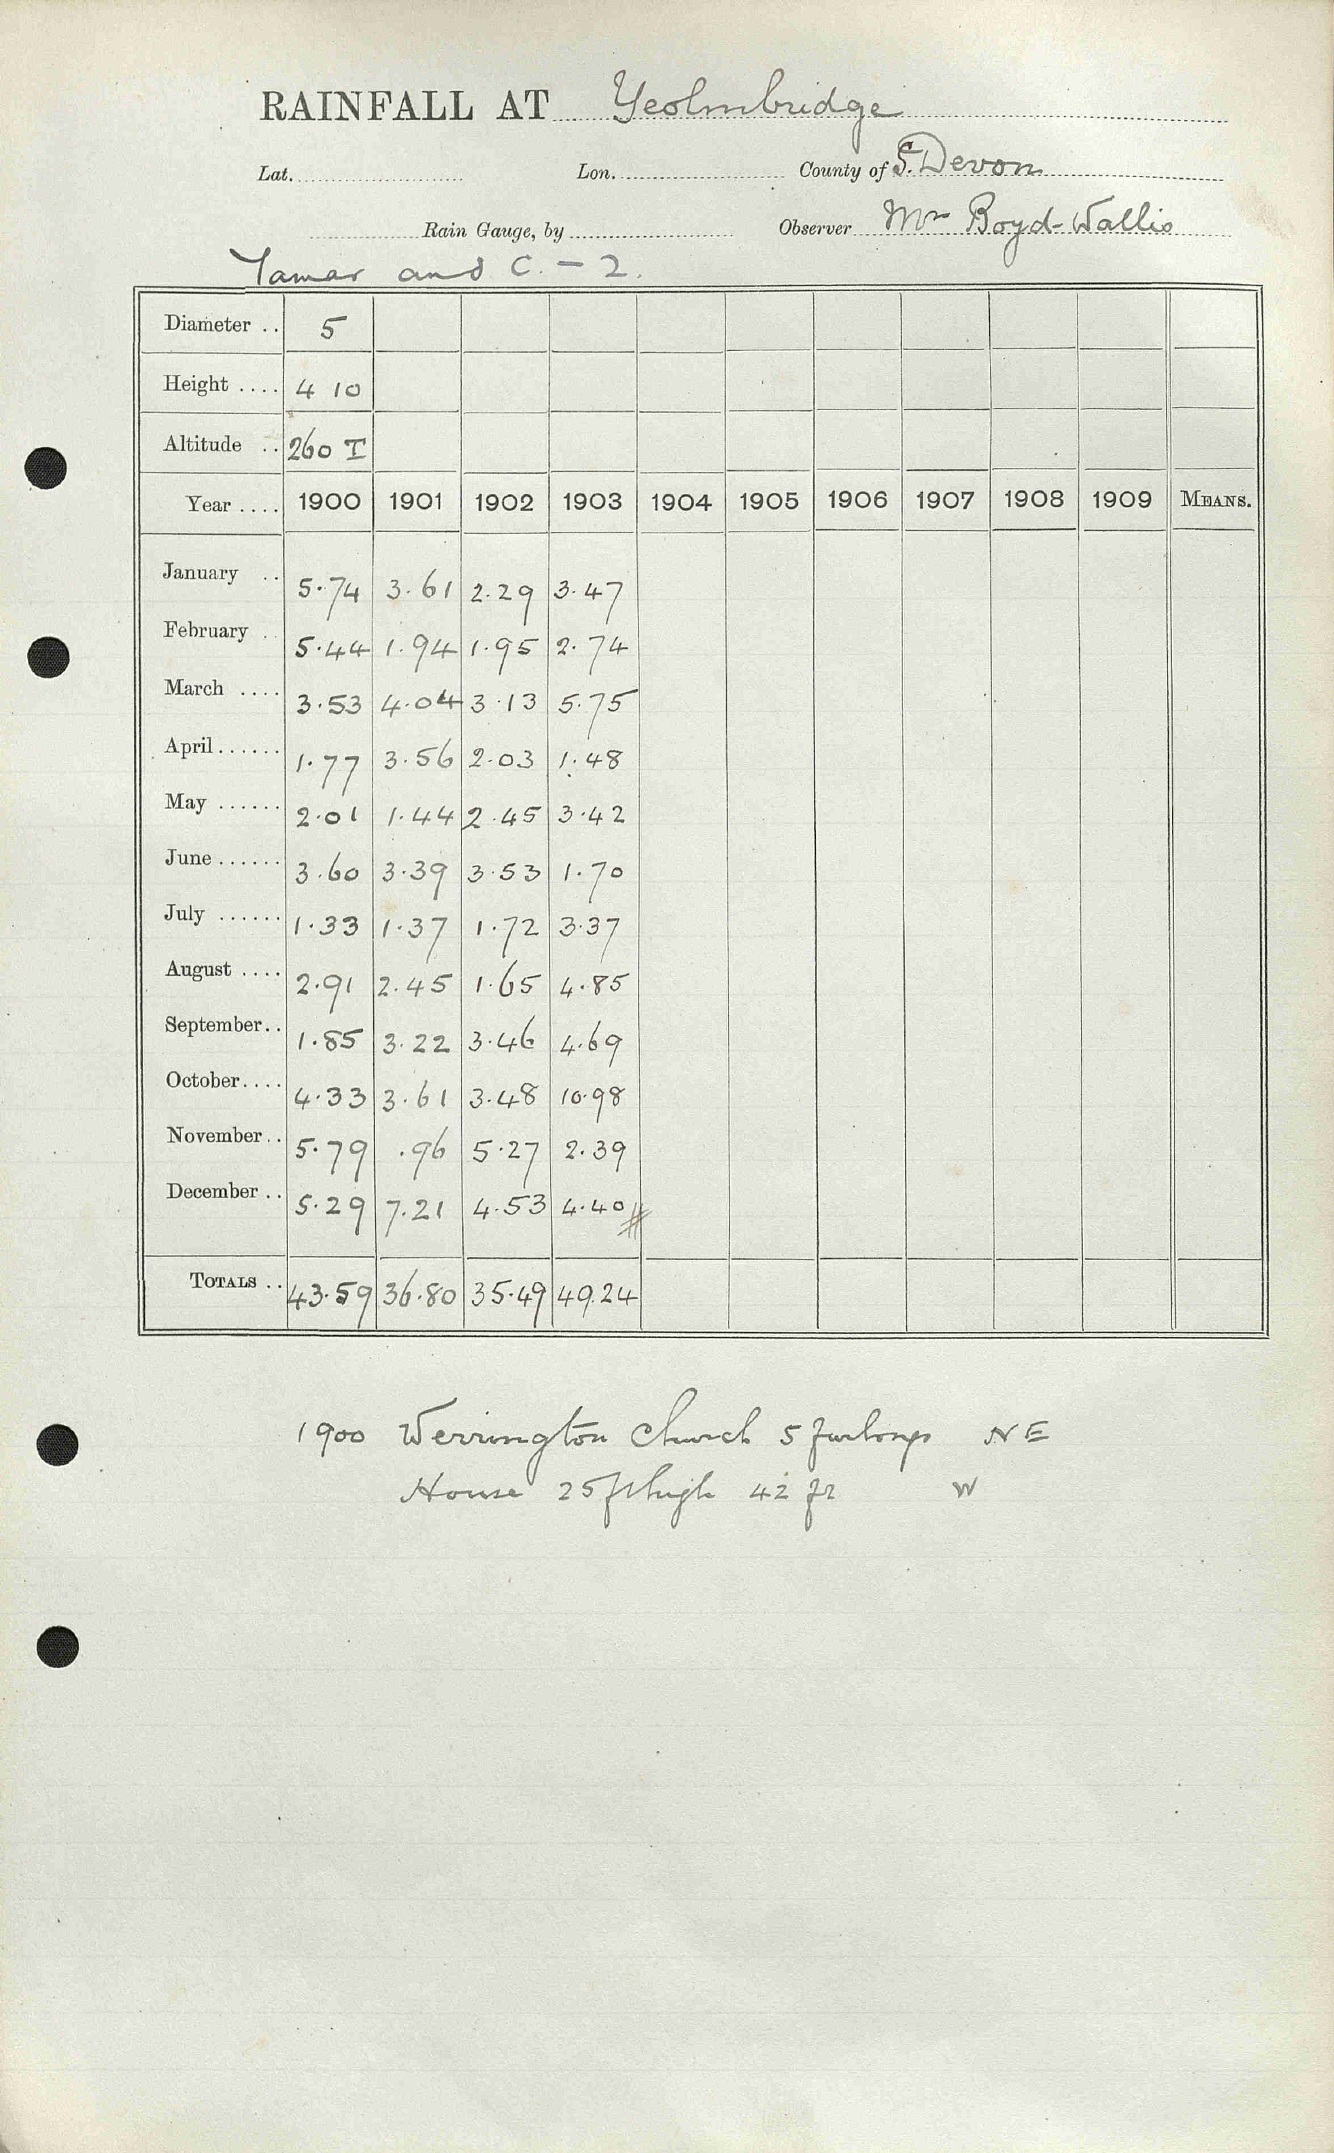 RAINFALL AT Yeolmbridge
Lat. Lon. County of S. Devon
Rain Gauge, by Observer Mrs Boyd-Wallis
Tamar and C. - 2.
Diameter .. 5
Height .... 4 10
Altitude .. 260 T
Year .... 1900 1901 1902 1903 1904 1905 1906 1907 1908 1909 MEANS.
January .. 5.74 3.61 2.29 3.47
February .. 5.44 1.94 1.95 2.74
March .... 3.53 4.04 3.13 5.75
April ...... 1.77 3.56 2.03 1.48
May ...... 2.01 1.44 2.45 3.42
June ...... 3.60 3.39 3.53 1.70
July ...... 1.33 1.37 1.72 3.37
August .... 2.91 2.45 1.65 4.85
September .. 1.85 3.22 3.46 4.69
October .... 4.33 3.61 3.48 10.98
November .. 5.79 .96 5.27 2.39
December .. 5.29 7.21 4.53 4.40 #
TOTALS .. 43.59 36.80 35.49 49.24
1900 Werrington Church 5 furlongs NE
House 25 ft high 42 ft W